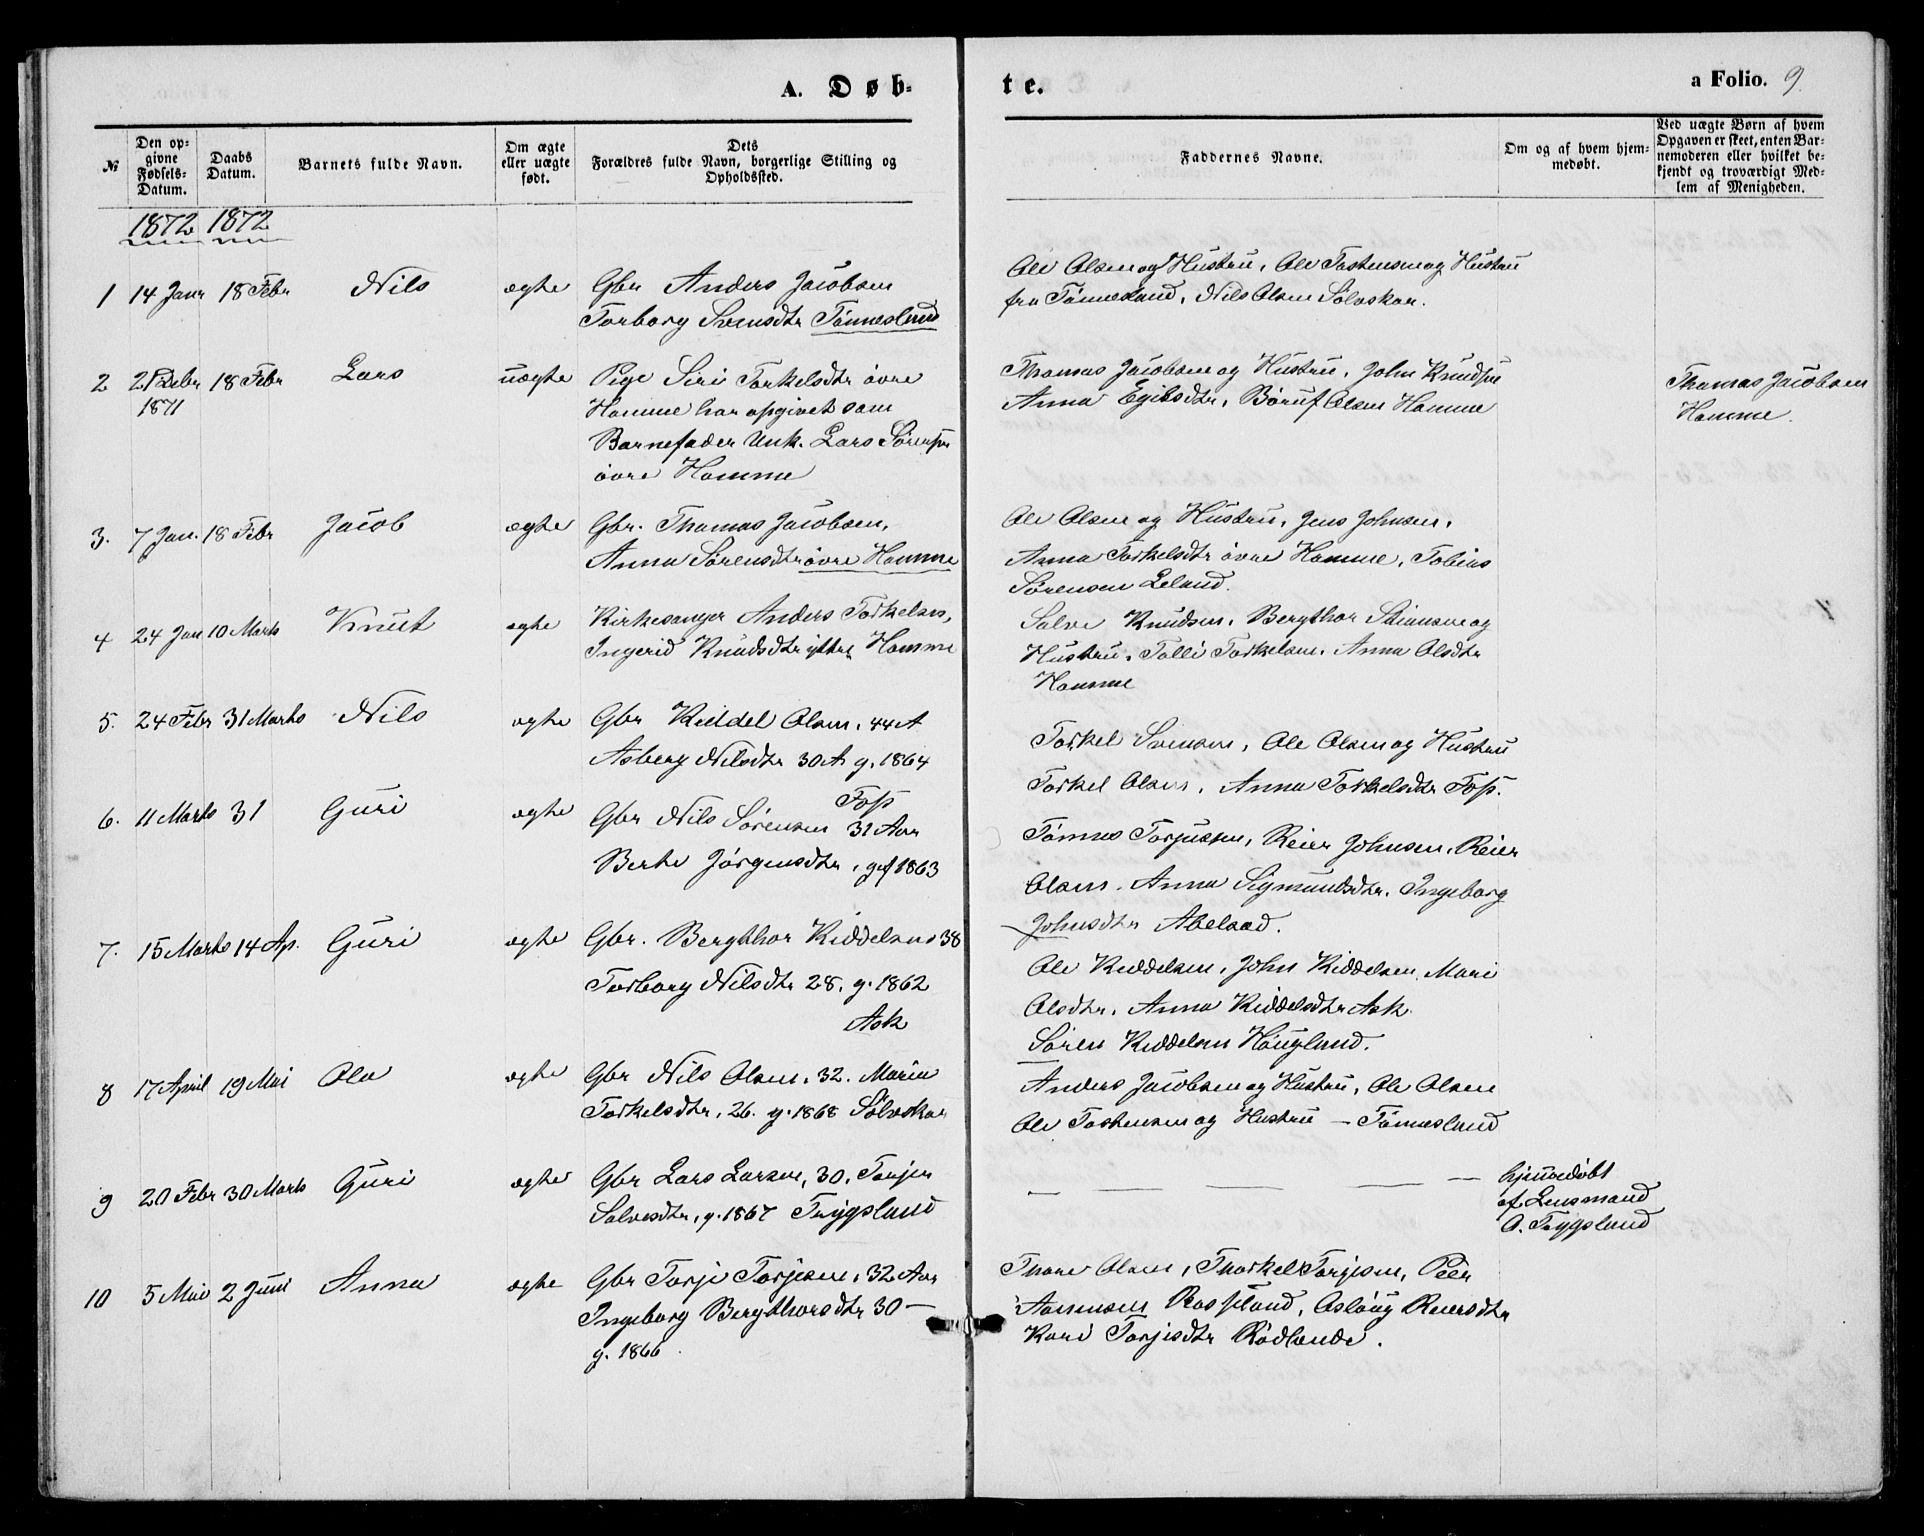 A. Døb-
te.
a Folio. 9
№
Den op-
givne
Fødsels-
Datum.
Daabs
Datum.
Barnets fulde Navn.
Om ægte
eller uægte
født.
Dets
Forældres fulde Navn, borgerlige Stilling og
Opholdssted.
Faddernes Navne.
Om og af hvem hjem-
medøbt.
Ved uægte Børn af hvem
Opgaven er skeet, enten Bar-
nemoderen eller hvilket be-
kjendt og troværdigt Med-
lem af Menigheden.
1872 1872
1 14 Janr 18 Febr Nils ægte Gbr Anders Jacobsen
Torborg Svensdtr Tønnesland
Ole Olsen og Hustru, Ole Tostensen og Hustru
fra Tønnesland, Nils Olsen Sølvskar.
2 21 Debr 18 Febr Lars uægte Pige Siri Torkelsdtr øvre
1871
Homme har opgivet som
Barnefader Unk. Lars Sørensen
øvre Homme
Thomas Jacobsen og Hustru, John Knudsen
Anna Egilsdtr, Børuf Olsen Homme
Thomas Jacobsen
Homme.
3. 7 Jan. 18 Febr Jacob ægte Gbr. Thomas Jacobsen,
Anna Sørensdtr øvre Homme
Ole Olsen og Hustru, Jens Johnsen,
Anna Torkelsdtr øvre Homme, Tobias
Sørensen Leland.
4 24 Jan 10 Marts Knut ægte Kirkesanger Anders Torkelsen,
Ingerid Knudsdtr yttre Homme
Salve Knudsen, Bergthor Stiansen og
Hustru, Tolli Torkelsen, Anna Olsdtr
Homme
5. 24 Febr 31 Marts Nils ægte Gbr Kiddel Olsen, 44 A
Asberg Nilsdtr 30 A g. 1864
Foss
Torkel Svensen, Ole Olsen og Hustru
Torkel Olsen, Anna Torkelsdtr Foss.
6. 11 Marts 31 Guri ægte Gbr Nils Sørensen 31 Aar
Berte Jørgensdtr, gif 1863
Tønnes Torjussen, Reier Johnsen, Reier
Olsen, Anna Sigmundsdtr, Ingeborg
Johnsdtr Abelsad.
7. 15 Marts 14 Ap. Guri ægte Gbr. Bergthor Kiddelsen 38
Torborg Nilsdtr 28, g. 1862
Ask
Ole Kiddelsen, John Kiddelsen, Mari
Olsdtr, Anna Kiddelsdtr Ask
Søren Kiddelsen Haugland.
8 17 April 19 Mai Ola ægte Gbr Nils Olsen, 32. Maria
Torkelsdtr, 26. g. 1868 Sølvskar
Anders Jacobsen og Hustru, Ole Olsen
Ole Tostensen og Hustru — Tønnesland
9 20 Febr 30 Marts Guri ægte Gbr Lars Larsen, 30, Torjer
Salvesdtr, g. 1867 Trygsland
— — — — —
hjemmedøbt
af Lensmand
O. Trygsland
10 5 Mai 2 Juni Anna ægte Gbr Torje Torjesen, 32 Aar
Ingeborg Bergthorsdtr 30 —
g. 1866
Thore Olsen, Thorkel Torjesen, Peer
Aanensen Rossland, Asløug Reiersdtr
Kari Torjesdtr Rødlande.